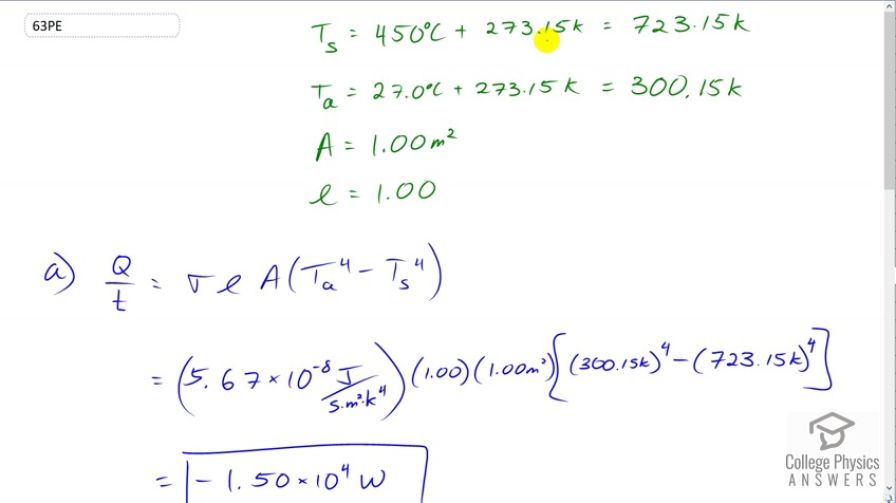 63PE
T_s = 450°C + 273.15k = 723.15k
T_a = 27.0°C + 273.15k = 300.15k
A = 1.00m²
e = 1.00
a) Q/t = σ e A(T_a⁴ − T_s⁴)
= (5.67×10⁻⁸ J/s·m²·k⁴)(1.00)(1.00m²)[(300.15k)⁴ − (723.15k)⁴]
= −1.50×10⁴ W
College Physics
ANSWERS